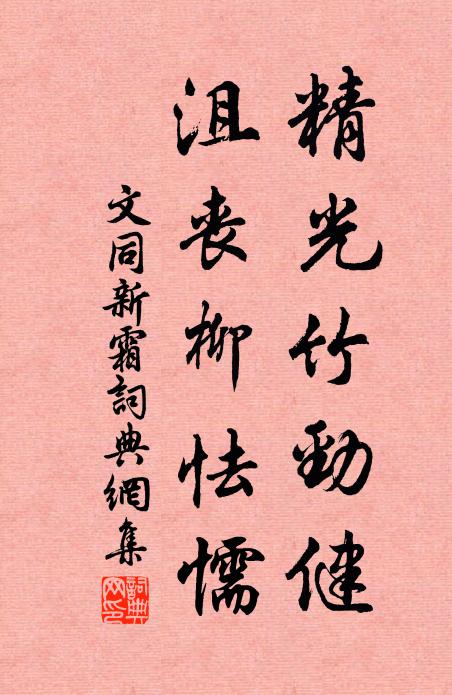 精光竹勁健
沮喪柳怯懦
文同新霜詞典網集
詞典網印